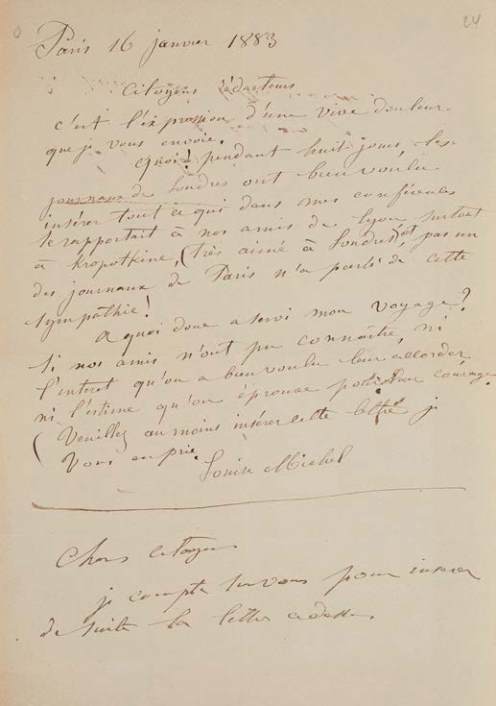 24
Paris 16 janvier 1883
Citoyens rédacteurs
c'est l'expression d'une vive douleur
que je vous envoie.
Quoi! pendant huit jours, les
journaux de Londres ont bien voulu
insérer tout ce qui dans mes conférences
se rapportait à nos amis de Lyon surtout
à Kropotkine, (très aimé à Londres) et pas un
des journaux de Paris n'a parlé de cette
sympathie!
A quoi donc a servi mon voyage?
Si nos amis n'ont pu connaître, ni
l'intéret qu'on a bien voulu leur accorder
ni l'estime qu'on éprouve pour leur courage.
(Veuillez au moins insérer cette lettre je
vous en prie.
Louise Michel
Chers citoyens
je compte sur vous pour insérer
de suite la lettre ci dessus.